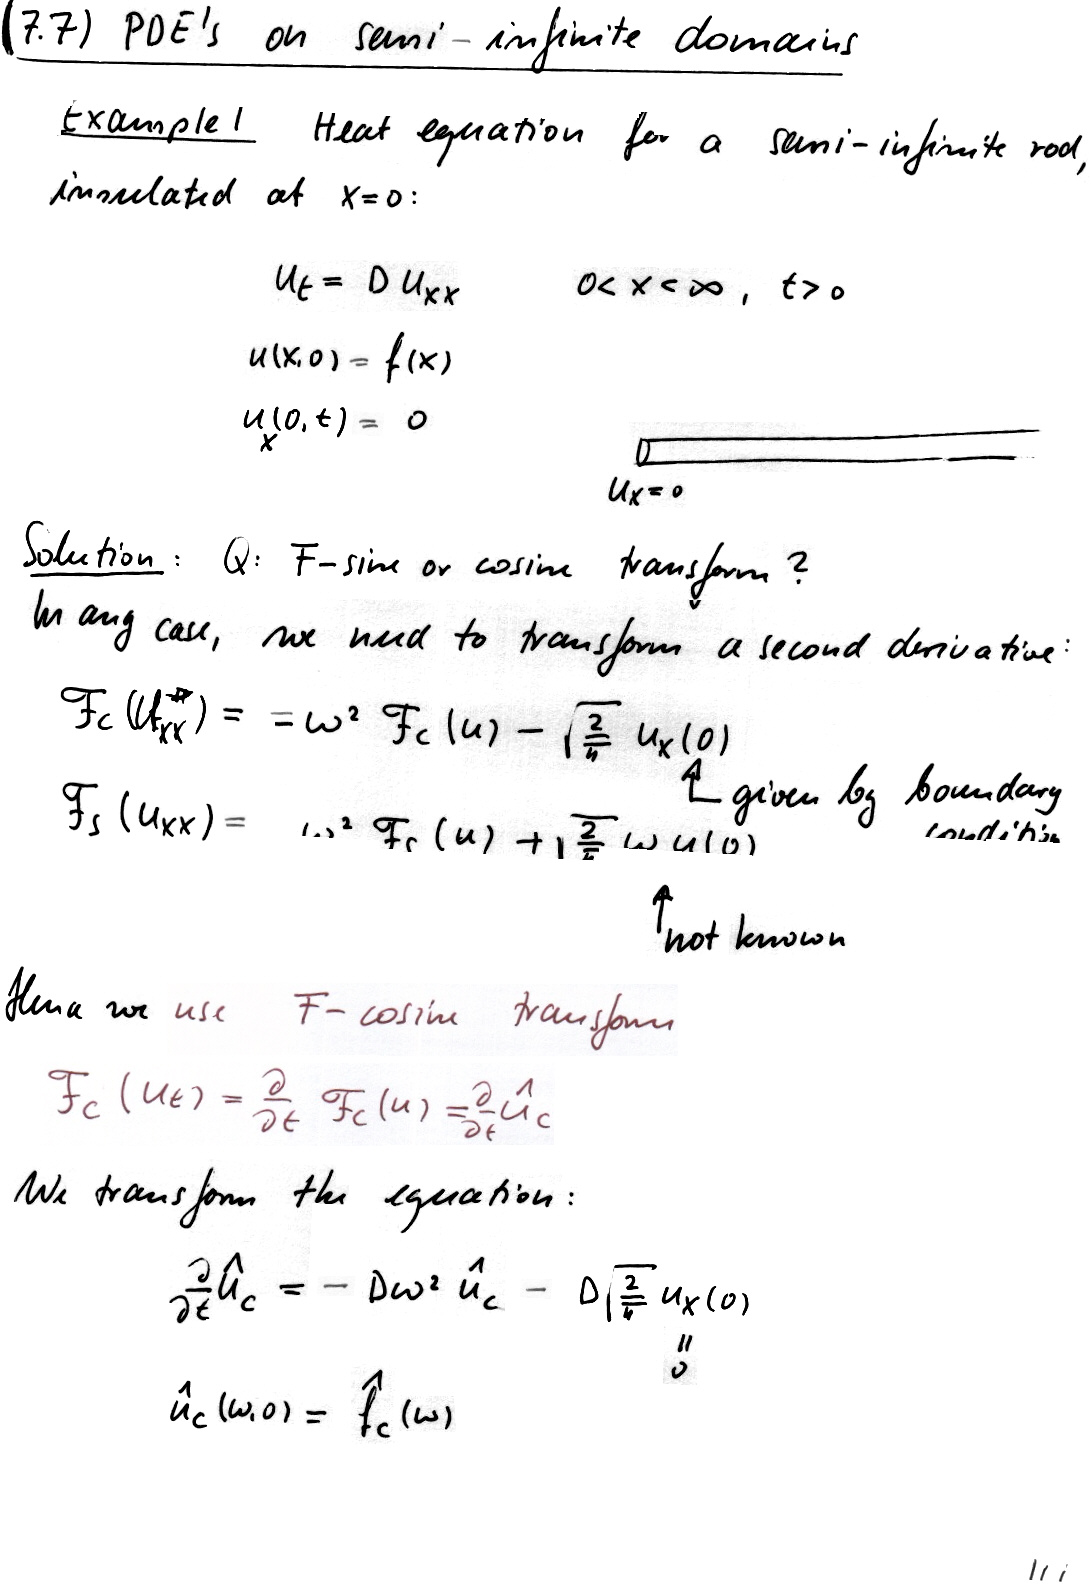 (7.7) PDE's on semi-infinite domains
Example 1 Heat equation for a semi-infinite rod,
insulated at x=0:
u_t = D u_xx 0< x < ∞, t>0
u(x,0) = f(x)
u_x(0,t) = 0
u_x=0
Solution: Q: F-sine or cosine transform?
In any case, we need to transform a second derivative:
ℱ_c(u_xx) = = ω² ℱ_c(u) - √(2/π) u_x(0)
↑ given by boundary
condition
ℱ_s(u_xx) = ω² ℱ_s(u) + √(2/π) ω u(0)
↑ not known
Hence we use F-cosine transform
ℱ_c(u_t) = ∂/∂t ℱ_c(u) = ∂/∂t û_c
We transform the equation:
∂/∂t û_c = - Dω² û_c - D√(2/π) u_x(0)
=
0
û_c(ω,0) = f̂_c(ω)